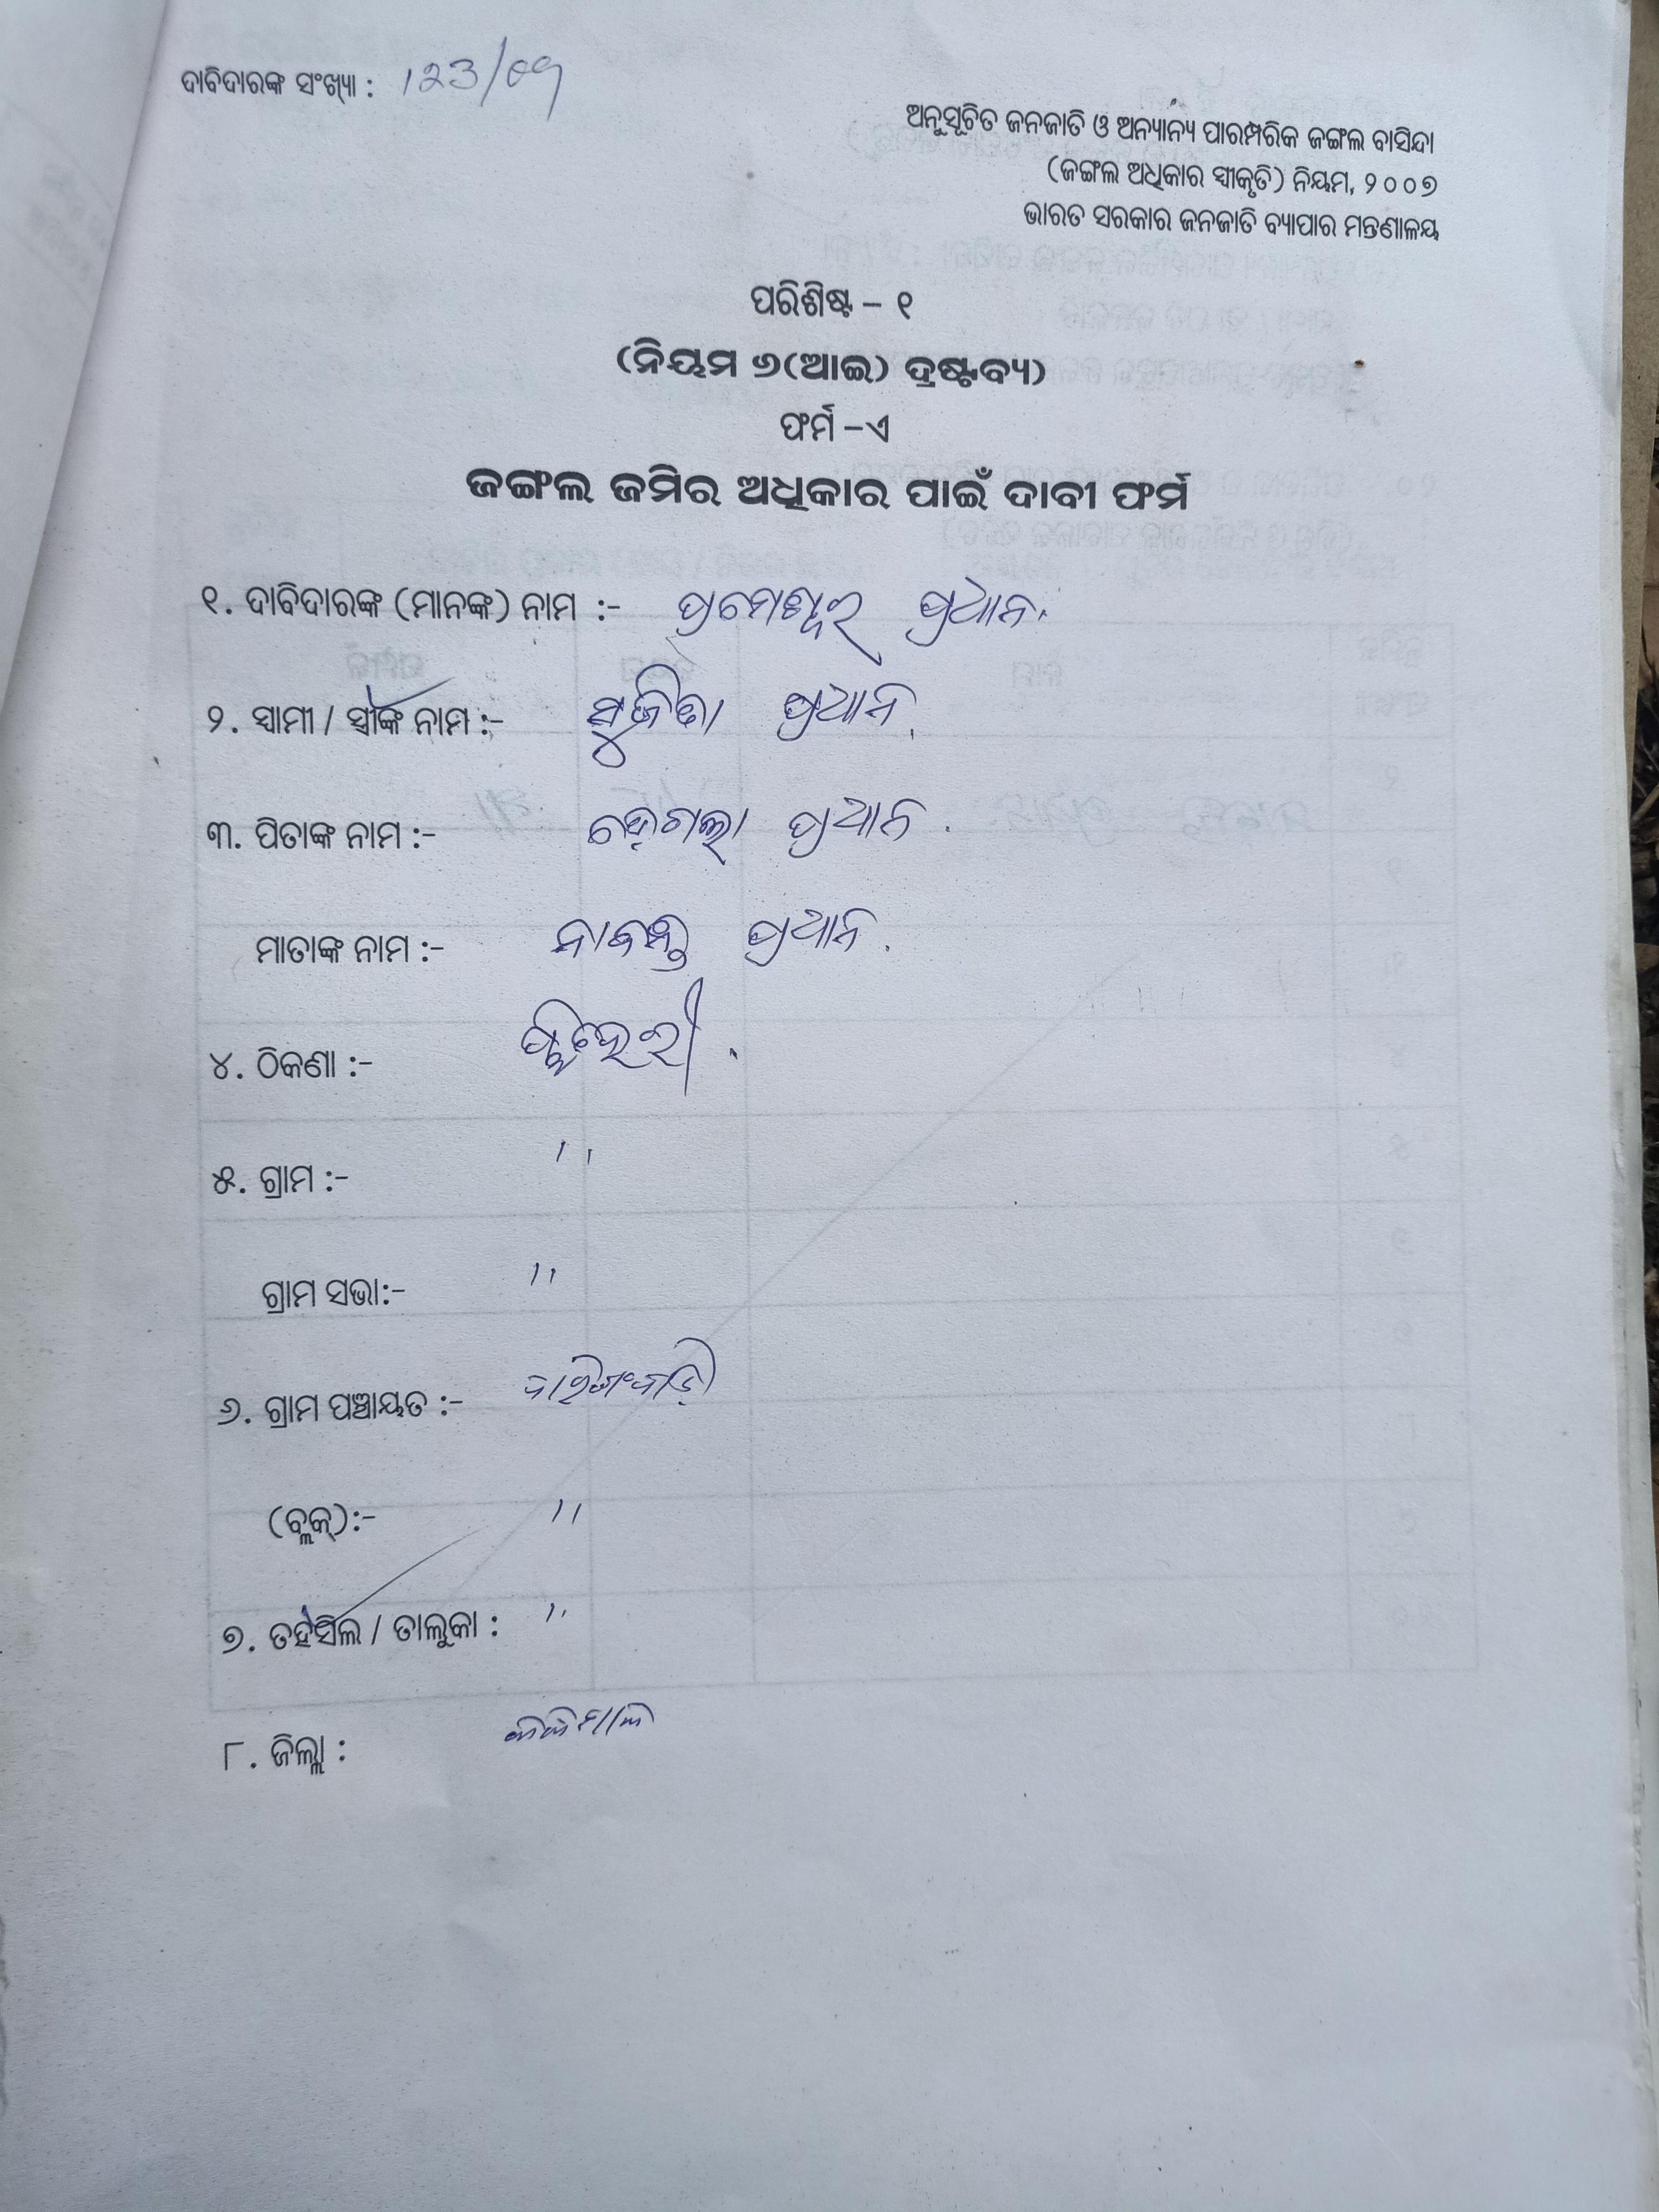 ଦାବିଦାରଙ୍କ ସଂଖ୍ୟା : 123/09
ଅନୁସୂଚିତ ଜନଜାତି ଓ ଅନ୍ୟାନ୍ୟ ପାରମ୍ପରିକ ଜଙ୍ଗଲ ବାସିନ୍ଦା
(ଜଙ୍ଗଲ ଅଧିକାର ସ୍ୱୀକୃତି) ନିୟମ, ୨୦୦୭
ଭାରତ ସରକାର ଜନଜାତି ବ୍ୟାପାର ମନ୍ତ୍ରଣାଳୟ
ପରିଶିଷ୍ଟ – ୧
(ନିୟମ ୬(ଆଇ) ଦ୍ରଷ୍ଟବ୍ୟ)
ଫର୍ମ –ଏ
ଜଙ୍ଗଲ ଜମିର ଅଧିକାର ପାଇଁ ଦାବୀ ଫର୍ମ
୧. ଦାବିଦାରଙ୍କ (ମାନଙ୍କ) ନାମ :- ପ୍ରମେଶ୍ୱର ପ୍ରଧାନ.
୨. ସ୍ୱାମୀ / ସ୍ତ୍ରୀଙ୍କ ନାମ :- ପ୍ରଧାନ
୩. ପିତାଙ୍କ ନାମ :- ପ୍ରଧାନ .
ମାତାଙ୍କ ନାମ :- ପ୍ରଧାନ .
୪. ଠିକଣା :-
୫. ଗ୍ରାମ :- ''
ଗ୍ରାମ ସଭା:- ''
୬. ଗ୍ରାମ ପଞ୍ଚାୟତ :-
(ବ୍ଲକ୍):- ''
୭. ତହସିଲ / ତାଲୁକା : ''
୮. ଜିଲ୍ଲା :